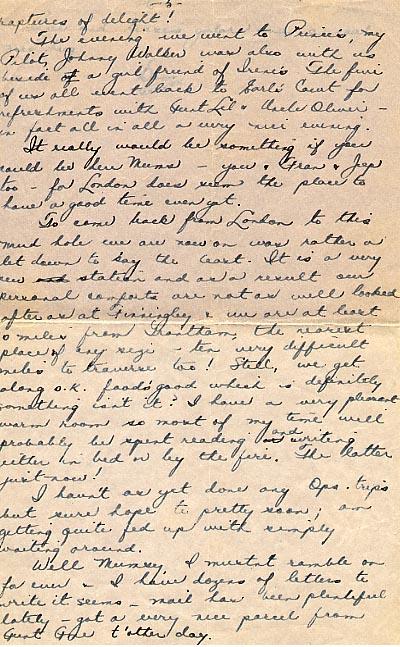 - 5 -
raptures of delight!
The evening we went to Prince's my
Pilot, Johnny Walker was also with us
beside of a girl friend of Irene's. The five
of us all went back to Earl's Court for
refreshments with Aunt Lil & Uncle Oliver -
in fact all in all a very nice evening.
It really would be something if you
could be here Mums - you & Gran & Jep
too - for London does seem the place to
have a good time even yet.
To come back from London to this
mud hole we are now on was rather a
let down to say the least. It is a very
new station and as a result our
personal comforts are not as well looked
after as at Finningley & we are at least
0 miles from Grantham, the nearest
place of any size - ten very difficult
miles to traverse too! Still, we get
along o.k. food's good which is definitely
something isn't it? I have a very pleasant
warm room so most of my time will
probably be spent reading and writing
either in bed or by the fire. The latter
just now!
I havn't as yet done any Ops. trips
but sure hope to pretty soon; am
getting quite fed up with simply
waiting around.
Well Mumsy, I mustn't ramble on
for ever - I have dozens of letters to
write it seems - mail has been plentiful
lately - got a very nice parcel from
Aunt t'other day.